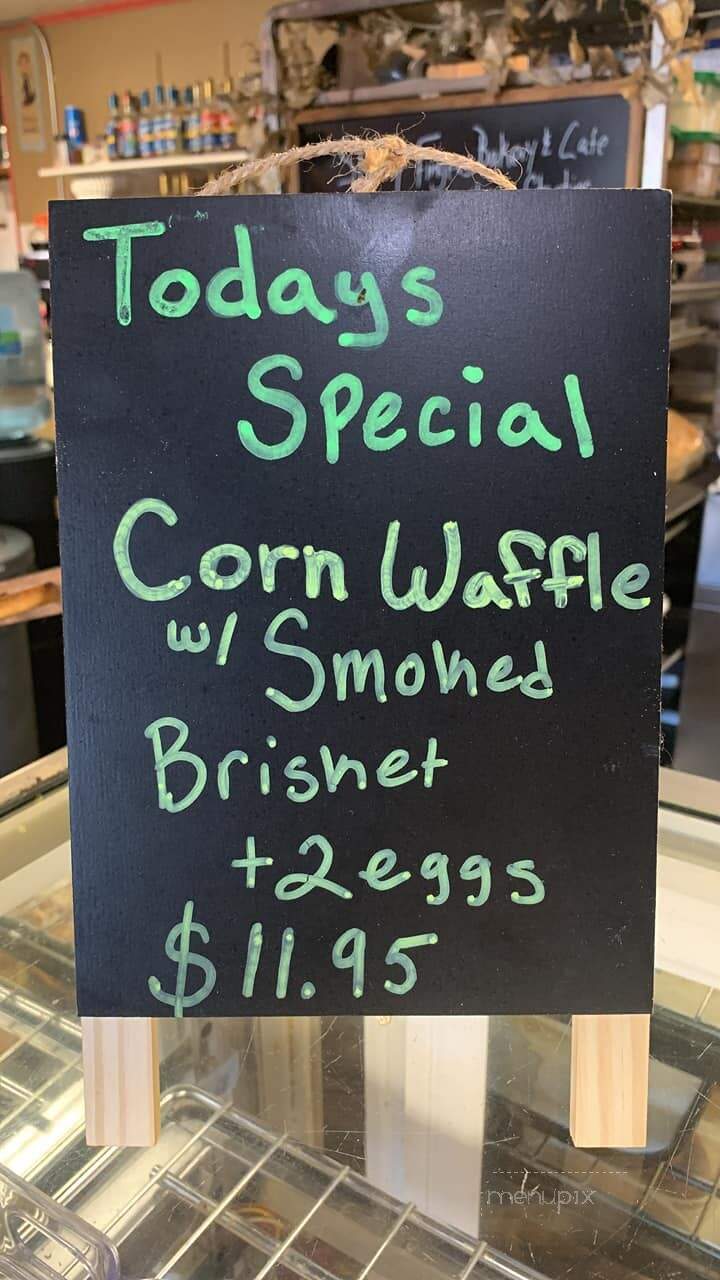 Bakery & Cafe
Todays
Special
Corn Waffle
w/ Smoked
Brisket
+2 eggs
$11.95
menupix